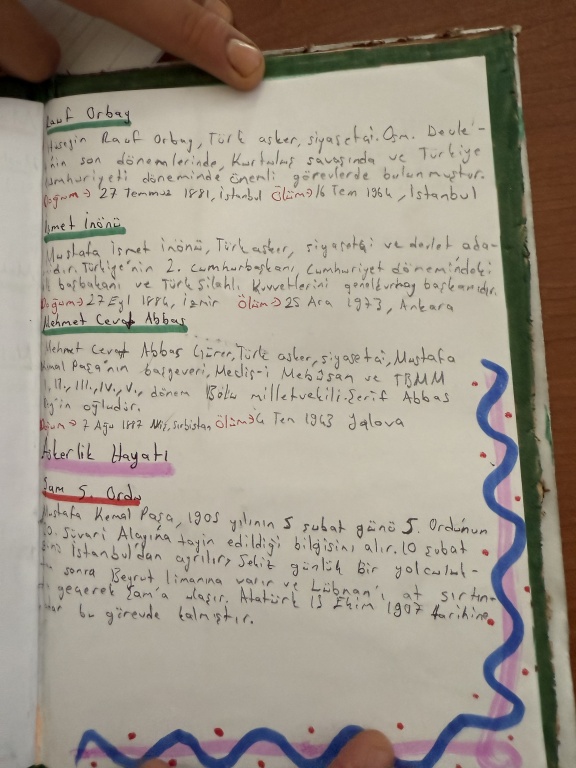 Rauf Orbay
Hüseyin Rauf Orbay, Türk asker, siyasetçi. Osm. Devle-
nin son dönemlerinde, Kurtuluş savaşında ve Türkiye
Cumhuriyeti döneminde önemli görevlerde bulunmuştur.
Doğum→ 27 Temmuz 1881, İstanbul Ölüm→ 16 Tem 1964, İstanbul
İsmet İnönü
Mustafa İsmet İnönü, Türk asker, siyasetçi ve devlet ada-
mıdır. Türkiye'nin 2. cumhurbaşkanı, Cumhuriyet dönemindeki
ilk başbakanı ve Türk Silahlı Kuvvetlerini genelkurbay başkanıdır.
Doğum→ 27 Eyl 1884, İzmir Ölüm→ 25 Ara 1973, Ankara
Mehmet Cevat Abbas
Mehmet Cevat Abbas Gürer, Türk asker, siyasetçi, Mustafa
Kemal Paşa'nın başyaveri, Meclis-i Mebusan ve TBMM
I, II., III., IV., V., dönem Bolu milletvekili. Şerif Abbas
Bey'in oğludur.
Doğum→ 7 Ağu 1887 Niş, Sırbistan Ölüm→ 4 Tem 1943 Yalova
Askerlik Hayatı
Şam 5. Ordu
Mustafa Kemal Paşa, 1905 yılının 5 şubat günü 5. Ordunun
30. Süvari Alayına tayin edildiği bilgisini alır. 10 şubat
günü İstanbul'dan ayrılır, Sekiz günlük bir yolculuk-
tan sonra Beyrut limanına varır ve Lübnan'ı at sırtın-
da geçerek Şam'a ulaşır. Atatürk 13 Ekim 1907 tarihine
kadar bu görevde kalmıştır.